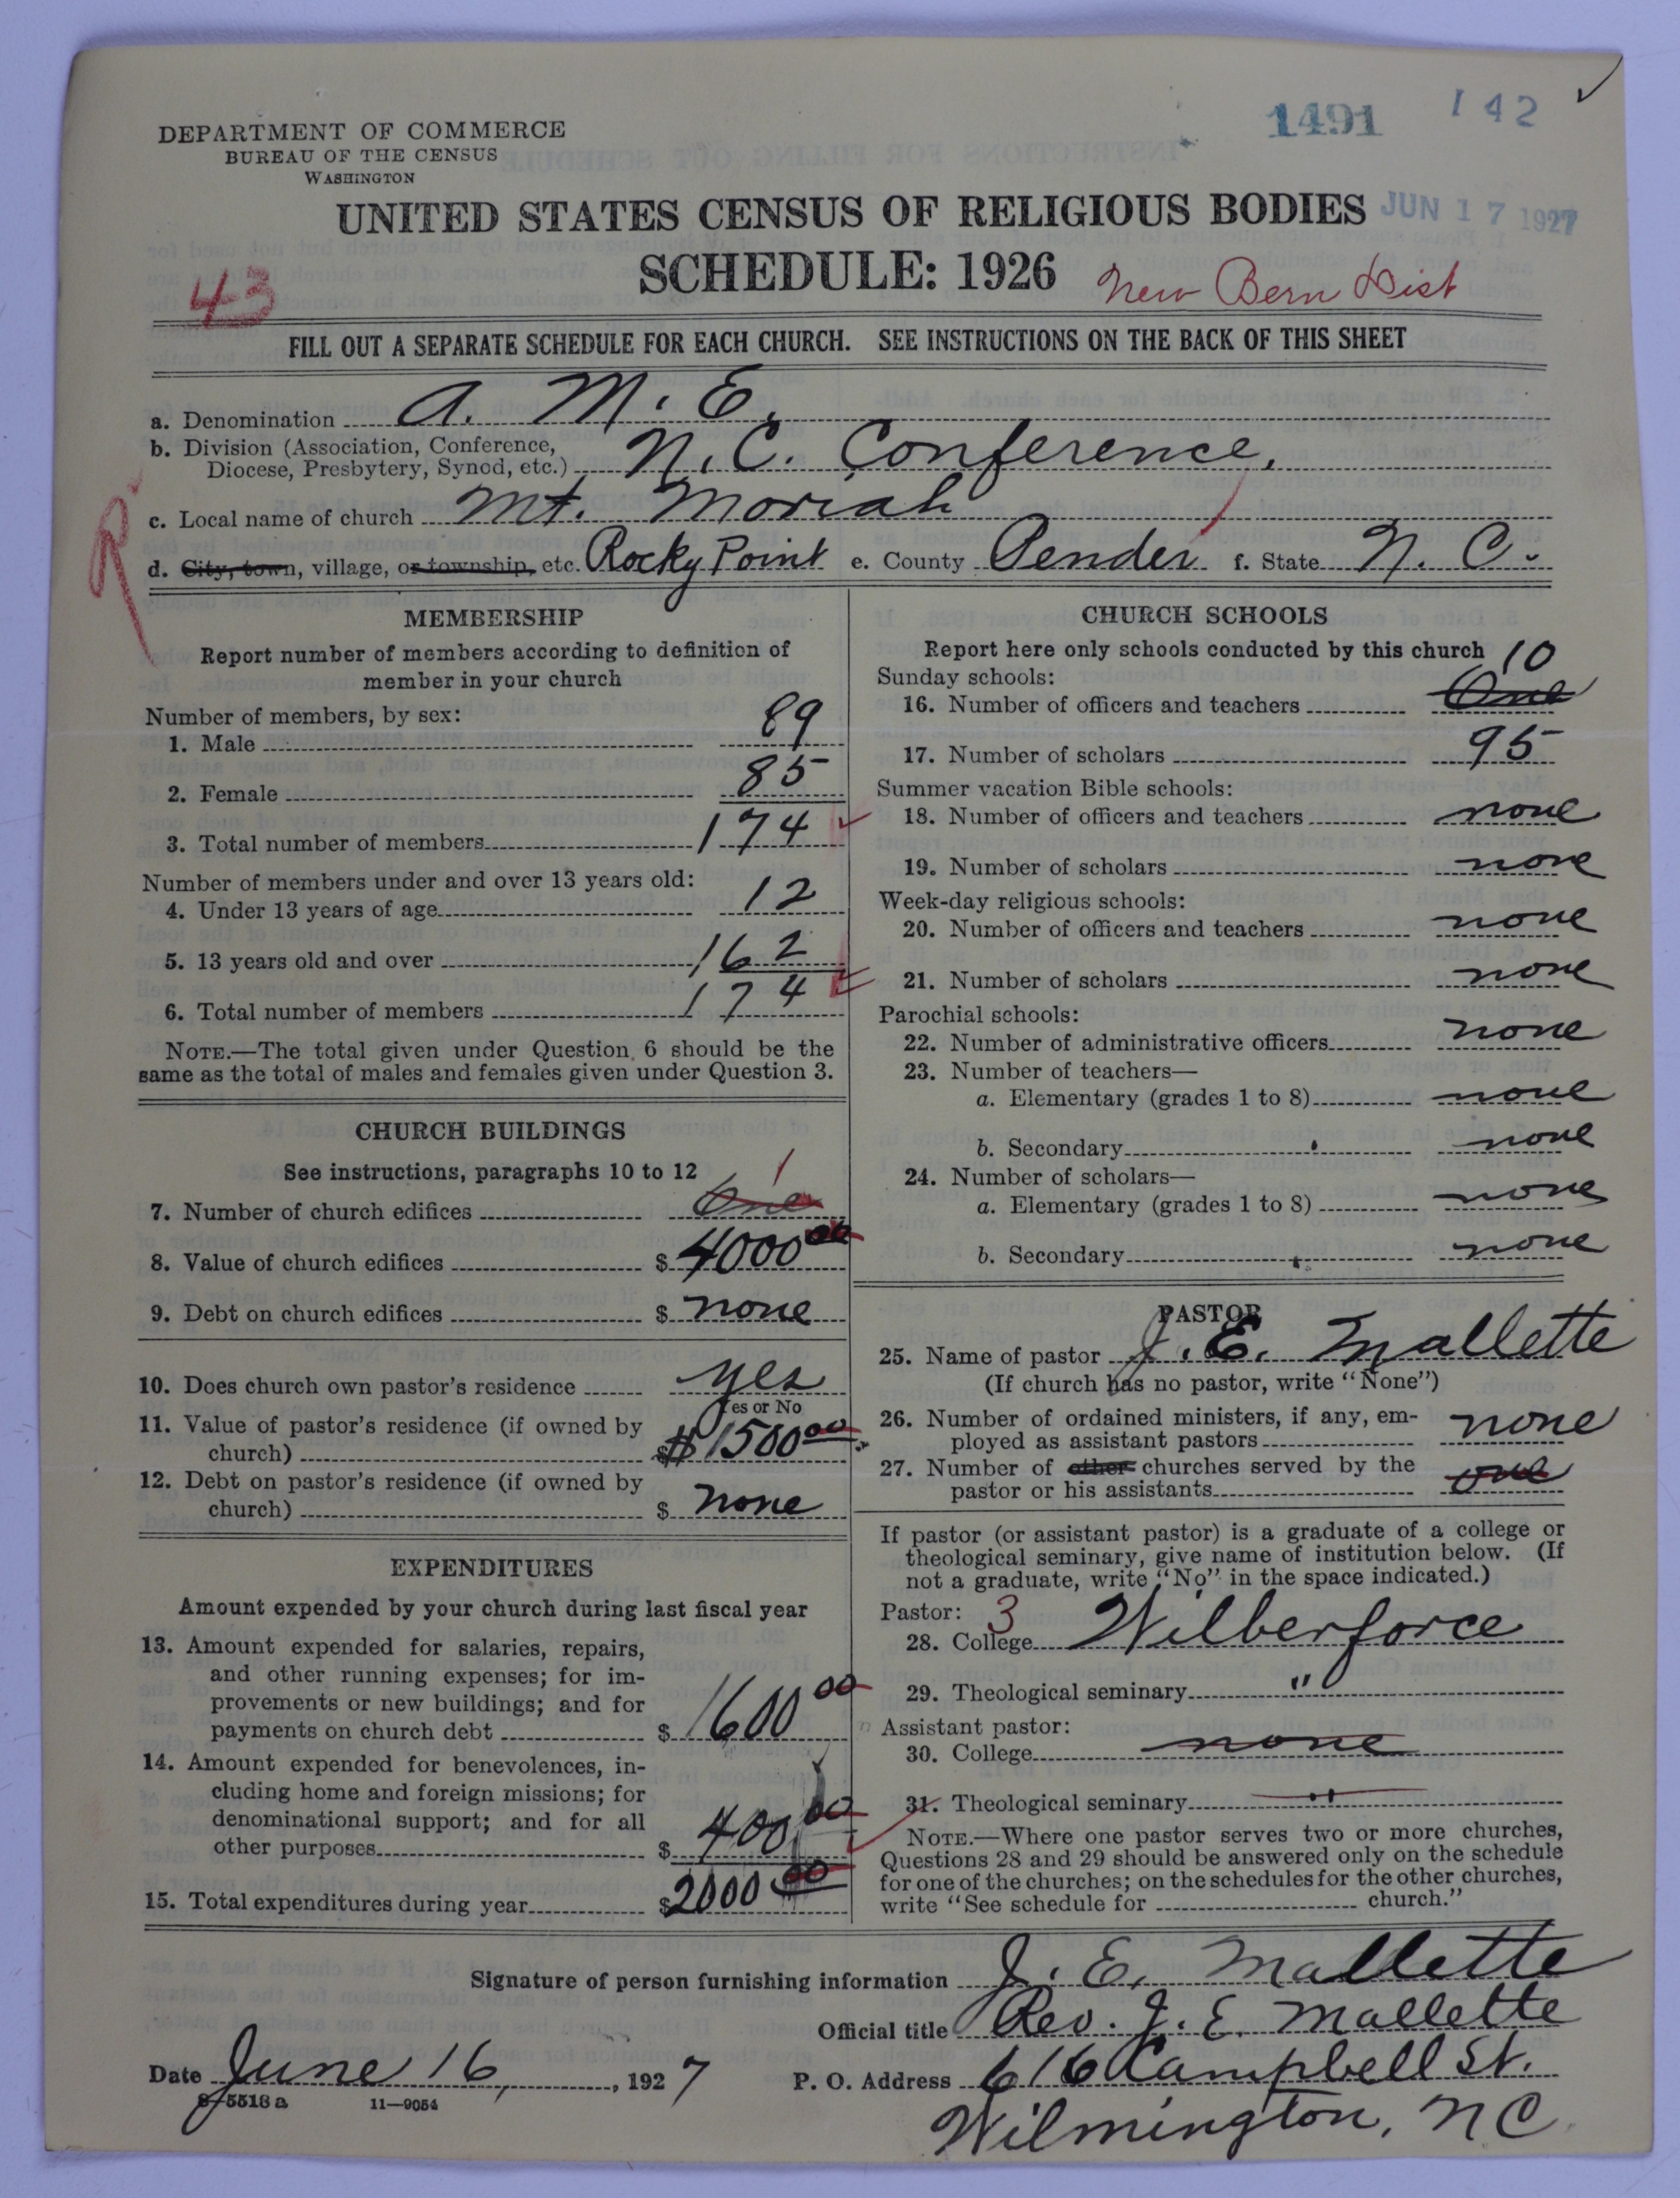 1491 142
DEPARTMENT OF COMMERCE
BUREAU OF THE CENSUS
WASHINGTON
UNITED STATES CENSUS OF RELIGIOUS BODIES
JUN 17 1927
SCHEDULE: 1926
43
New Bern Dist
FILL OUT A SEPARATE SCHEDULE FOR EACH CHURCH. SEE INSTRUCTIONS ON THE BACK OF THIS SHEET
a. Denomination A. M. E.
b. Division (Association, Conference,
Diocese, Presbytery, Synod, etc.) N. C. Conference.
c. Local name of church Mt. Moriah
d. City, town, village, or township, etc. Rocky Point e. County Pender f. State N. C.
MEMBERSHIP
Report number of members according to definition of
member in your church
Number of members, by sex:
1. Male 89
2. Female 85
3. Total number of members 174
Number of members under and over 13 years old:
4. Under 13 years of age 12
5. 13 years old and over 162
6. Total number of members 174
NOTE.—The total given under Question 6 should be the
same as the total of males and females given under Question 3.
CHURCH BUILDINGS
See instructions, paragraphs 10 to 12
1
7. Number of church edifices One
8. Value of church edifices $ 4000 00
9. Debt on church edifices $ none
10. Does church own pastor's residence yes
Yes or No
11. Value of pastor's residence (if owned by
church) $ $1500 00
12. Debt on pastor's residence (if owned by
church) $ none
EXPENDITURES
Amount expended by your church during last fiscal year
13. Amount expended for salaries, repairs,
and other running expenses; for im-
provements or new buildings; and for
payments on church debt $ 1600 00
14. Amount expended for benevolences, in-
cluding home and foreign missions; for
denominational support; and for all
other purposes $ 400.00
15. Total expenditures during year $ 2000 00
CHURCH SCHOOLS
Report here only schools conducted by this church
Sunday schools: 10
16. Number of officers and teachers One
17. Number of scholars 95
Summer vacation Bible schools:
18. Number of officers and teachers none
19. Number of scholars none
Week-day religious schools:
20. Number of officers and teachers none
21. Number of scholars none
Parochial schools:
22. Number of administrative officers none
23. Number of teachers—
a. Elementary (grades 1 to 8) none
b. Secondary none
24. Number of scholars—
a. Elementary (grades 1 to 8) none
b. Secondary none
PASTOR
25. Name of pastor J. E. Mallette
(If church has no pastor, write "None")
26. Number of ordained ministers, if any, em-
ployed as assistant pastors none
27. Number of other churches served by the
pastor or his assistants one
If pastor (or assistant pastor) is a graduate of a college or
theological seminary, give name of institution below. (If
not a graduate, write "No" in the space indicated.)
Pastor: 3
28. College Wilberforce
29. Theological seminary "
Assistant pastor:
30. College none
31. Theological seminary "
NOTE.—Where one pastor serves two or more churches,
Questions 28 and 29 should be answered only on the schedule
for one of the churches; on the schedules for the other churches,
write "See schedule for church."
Signature of person furnishing information J. E. Mallette
Official title Rev. J. E. Mallette
Date June 16, 1927 P. O. Address 616 Campbell St.
8—5518a 11—9054
Wilmington, N C.